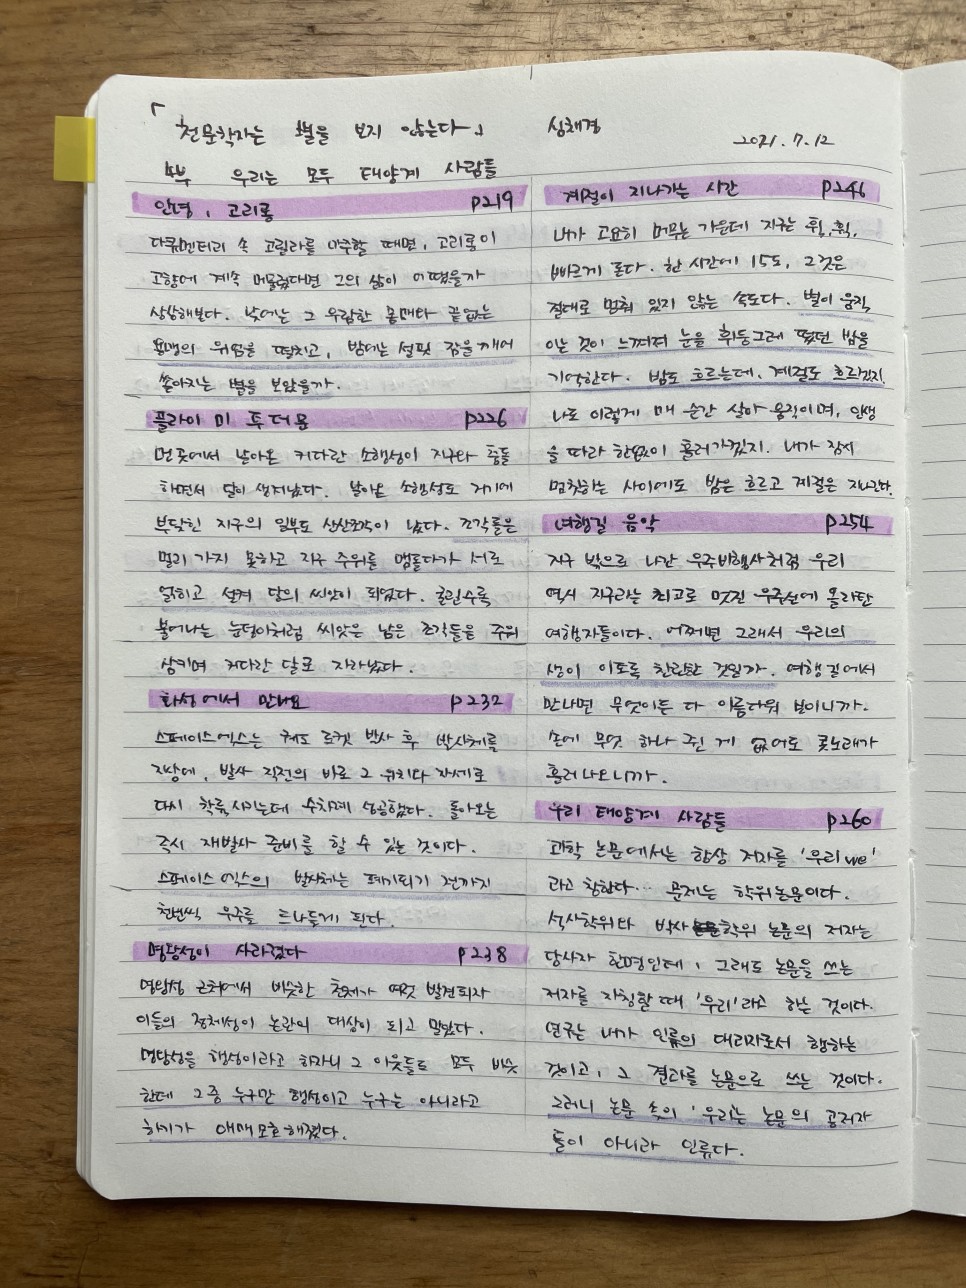 「천문학자는 별을 보지 않는다」 심채경
2021.7.12
4부 우리는 모두 태양계 사람들
안녕, 고리롱 p219
다큐멘터리 속 고릴라를 마주할 때면, 고리롱이
고향에 계속 머물렀다면 그의 삶이 어땠을까
상상해본다. 낮에는 그 우람한 몸매와 끝없는
용맹의 위엄을 떨치고, 밤에는 설핏 잠을 깨어
쏟아지는 별을 보았을까.
플라이 미 투 더 문 p226
먼 곳에서 날아온 커다란 소행성이 지구와 충돌
하면서 달이 생겨났다. 날아온 소행성도 거기에
부닥힌 지구의 일부도 산산조각이 났다. 조각들은
멀리 가지 못하고 지구 주위를 맴돌다가 서로
얽히고 설켜 달의 씨앗이 되었다. 굴릴수록
불어나는 눈덩이처럼 씨앗은 남은 조각들을 주워
삼키며 커다란 달로 자라났다.
화성에서 만나요 p232
스페이스엑스는 궤도 로켓 발사 후 발사체를
지상에, 발사 직전의 바로 그 위치와 자세로
다시 착륙시키는데 수차례 성공했다. 돌아오는
즉시 재발사 준비를 할 수 있는 것이다.
스페이스엑스의 발사체는 폐기되기 전까지
천번씩 우주를 드나들게 된다.
명왕성이 사라졌다 p238
명왕성 근처에서 비슷한 천체가 여럿 발견되자
이들의 정체성이 논란의 대상이 되고 말았다.
명왕성을 행성이라고 하자니 그 이웃들도 모두 비슷
한데 그중 누구만 행성이고 누구는 아니라고
하기가 애매모호해졌다.
계절이 지나가는 시간 p246
내가 고요히 머무는 가운데 지구는 휙, 휙,
빠르게 돈다. 한 시간에 15도, 그것은
절대로 멈춰 있지 않는 속도다. 별이 움직
이는 것이 느껴져 눈을 휘둥그레 떴던 밤을
기억한다. 밤도 흐르는데, 계절도 흐르겠지.
나도 이렇게 매 순간 살아 움직이며, 인생
을 따라 한없이 흘러가겠지. 내가 잠시
멈칫하는 사이에도 밤은 흐르고 계절은 지나간다.
여행길 음악 p254
지구 밖으로 나간 우주비행사처럼 우리
역시 지구라는 최고로 멋진 우주선에 올라탄
여행자들이다. 어쩌면 그래서 우리의
생이 이토록 찬란한 것일까. 여행길에서
만나면 무엇이든 다 아름다워 보이니까.
손에 무엇 하나 쥔 게 없어도 콧노래가
흘러나오니까.
우리 태양계 사람들 p260
과학 논문에서는 항상 저자를 '우리 we'
라고 칭한다‥ 문제는 학위논문이다.
석사학위와 박사학위 논문의 저자는
당사자 한명인데, 그래도 논문을 쓰는
저자를 지칭할 때 '우리'라고 하는 것이다.
연구는 내가 인류의 대리자로서 행하는
것이고, 그 결과를 논문으로 쓰는 것이다.
그러니 논문 속의 '우리'는 논문의 공저자
들이 아니라 인류다.